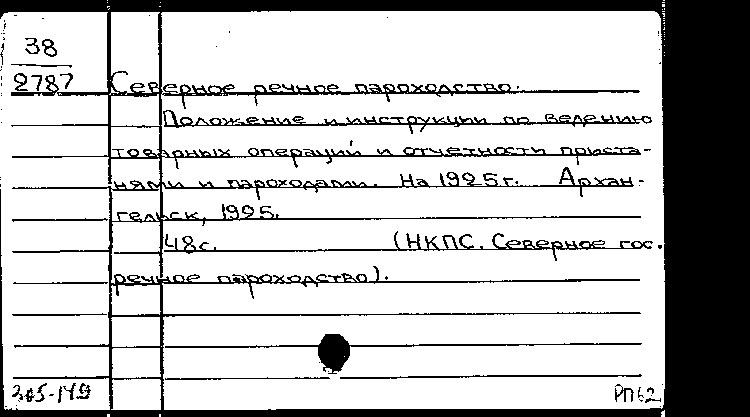 38
2787 Северное речное пароходство.
Положение и инструкции по ведению
товарных операций и отчетности приста-
нями и пароходами. На 1925г. Архан-
гельск, 1925.
48с. (НКПС. Северное гос.
речное пароходство).
РП62